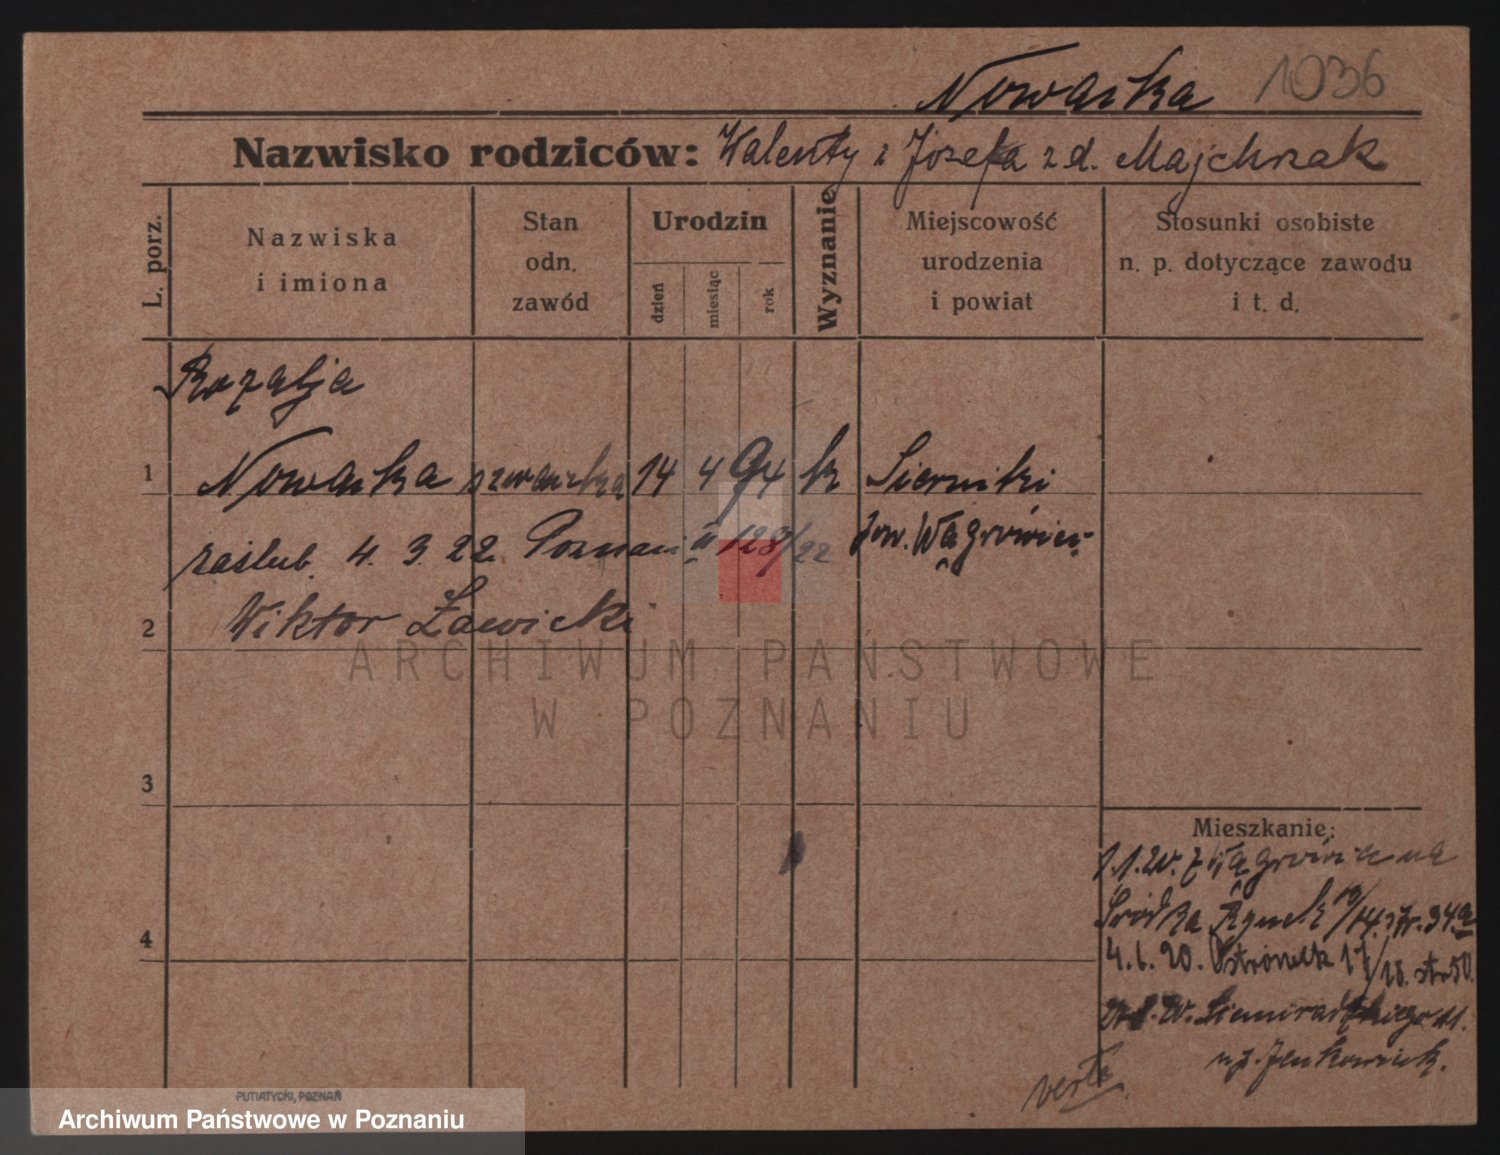 Nowacka 1036
Nazwisko rodziców: Walenty i Józefa z d. Majchrzak
L. porz.
Nazwiska
i imiona
Stan
odn.
zawód
Urodzin
dzień
miesiąc
rok
Wyznanie
Miejscowość
urodzenia
i powiat
Stosunki osobiste
n. p. dotyczące zawodu
i t. d.
Rozalja
1 Nowacka szwaczka 14 4 94 k Sierniki
zaślub. 4. 3. 22 Poznań II 128/22 pow. Wągrówiec
2 Wiktor Ławicki
ARCHIWUM PAŃSTWOWE
W POZNANIU
3
Mieszkanie:
1.1.20. z Wągrówiec na
Śródka Rynek 10/14. str. 34a
4 4.6.20. Ostrówek 17/18. str 50.
Siemiradzkiego 11.
verte
PUTIATYCKI, POZNAŃ
Archiwum Państwowe w Poznaniu